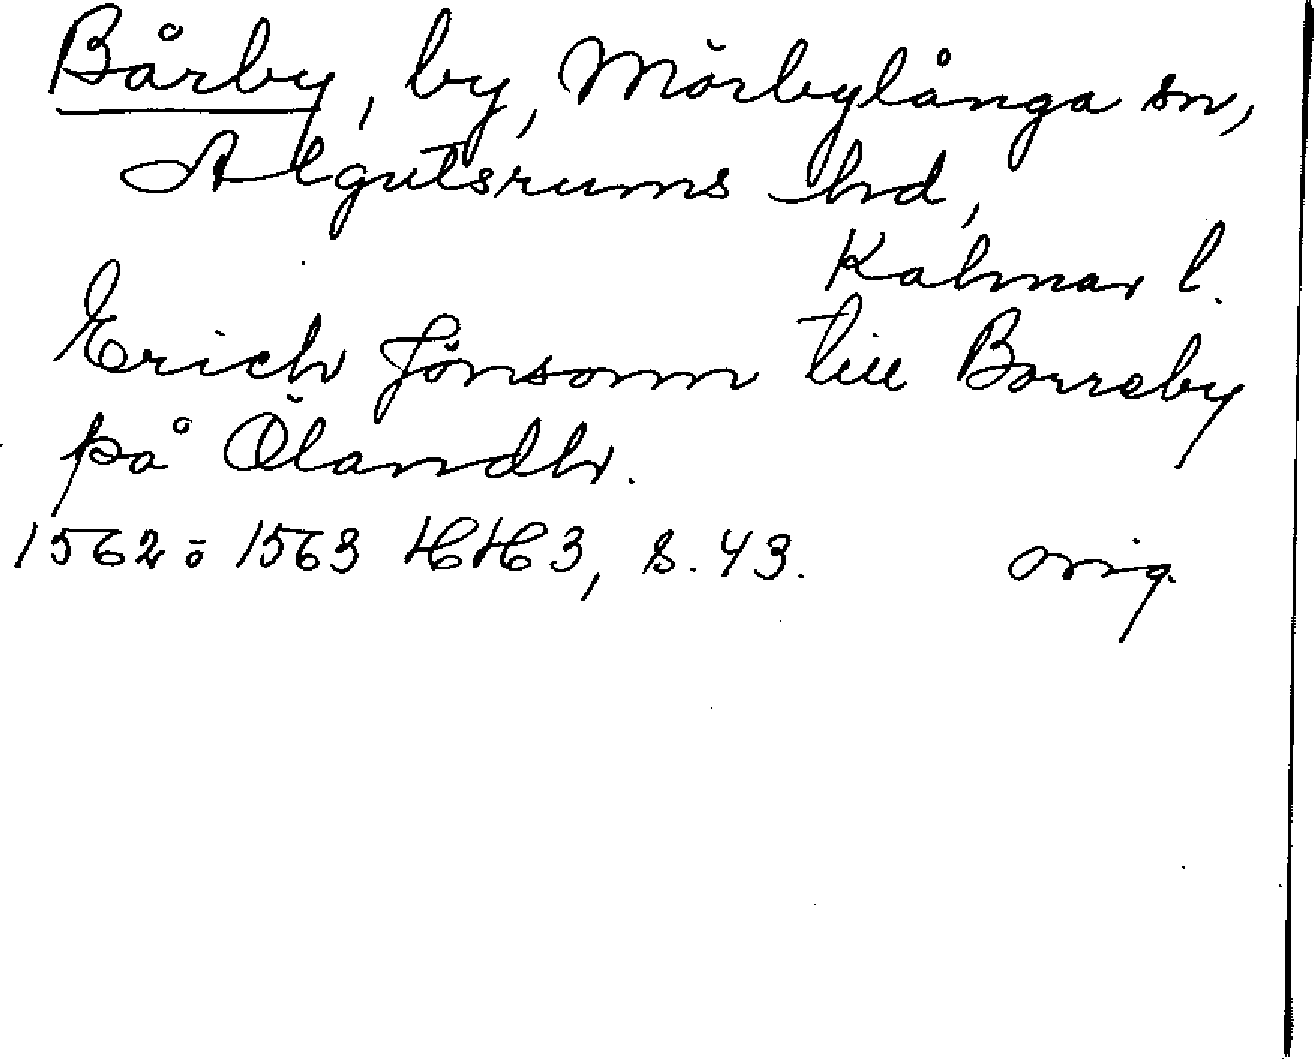 Bårby, by, Mörbylånga sn,
Algutsrums hd,
Kalmar l.
Erich Jönsonn till Borreby
på Ölandh.
1562 ö 1563 HH3, s. 43. orig.